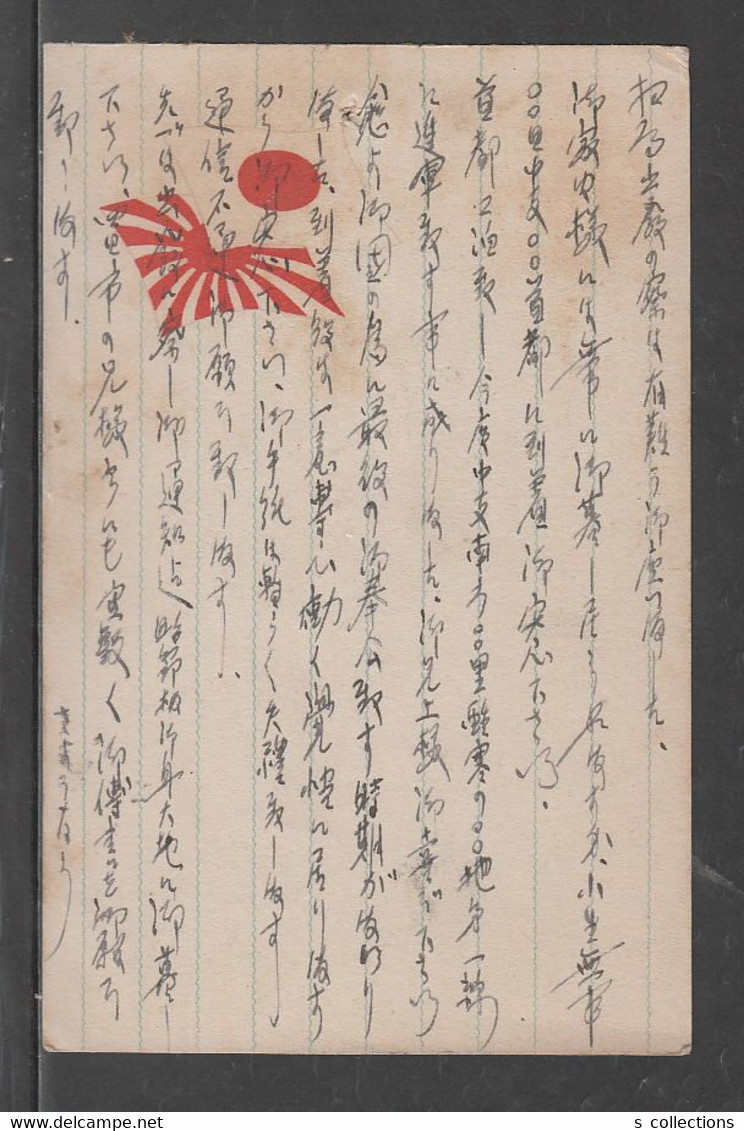 出發の際は有難う御座いました、
御家中様には常に御暮し居り ますか、小生無事
〇〇日中支〇〇首都に到着御安心下さい、
首都 致し今度中支南方〇〇里 寒の〇〇地第一線
に進軍致す事に成りました、御兄上様御喜び下さい
愈々御国の為に最後の御奉公致す時期がまいり
ました、到着後は一意専心働く覚悟に居ります
から御安心下さい、御手紙は暫らく失禮致します
通信不 御願ひ致します、
先づは 御通知迄 時節柄御身大切に御暮し
下さい、 市の兄様 にも宜敷く御傳 を御願ひ
致します。
s collections